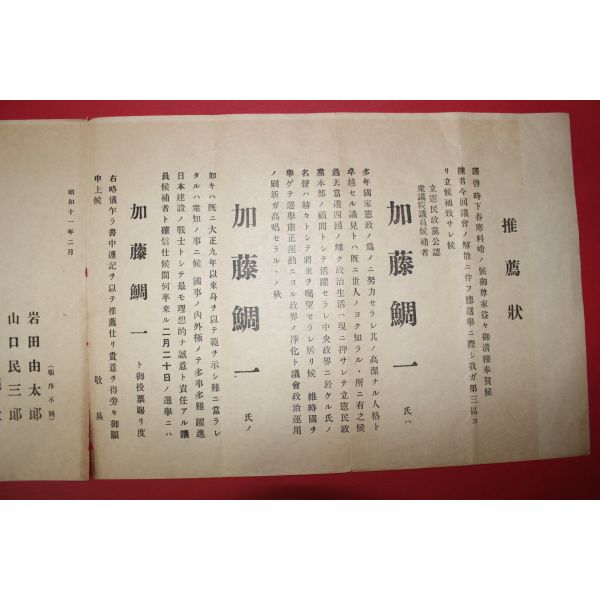 推薦狀
謹啓 時下春寒料峭ノ候御尊家益々御清穆奉賀候
陳者今回議會ノ解散ニ件フ總選擧ニ際シ我ガ第三區ヨ
リ立候補致サレ候
立憲民政黨公認
衆議院議員候補者
加藤鯛一 氏ハ
多年國家憲政ノ爲メニ努力セラレ其ノ高潔ナル人格ト
卓越セル議見トハ既ニ世人ノヨク知ラル丶所ニ有之候
過去當選四回ノ輝ク政治生活ハ現ニ押サレテ立憲民政
黨本部ノ顧問トシテ活躍セラレ中央政界ニ於ケル氏ノ
名聲ハ赫々トシテ將來ヲ囑望セラレ居リ候 維時國ヲ
擧ゲテ選擧肅正運動ニヨル政界ノ淨化ト議會政治運用
ノ刷新ガ高唱セラル丶ノ秋
加藤鯛一 氏ノ
如キハ既ニ大正九年以來身ヲ以テ範ヲ示シ難ニ當ラレ
タルハ衆知ノ事ニ候 國事ノ內外極メテ多事多難 躍進
日本建設ノ戰士トシテ最モ理想的ナ誠意ト責任アル議
員候補者ト確信仕候間何卒來ル二月二十日ノ選擧ニハ
加藤鯛一 ト御投票賜リ度
右略儀乍ラ書中連記ヲ以テ推薦仕リ貴意ヲ得旁々御願
申上候 敬具
昭和十一年二月
(順序不同)
岩田由太郎
山口民三郎